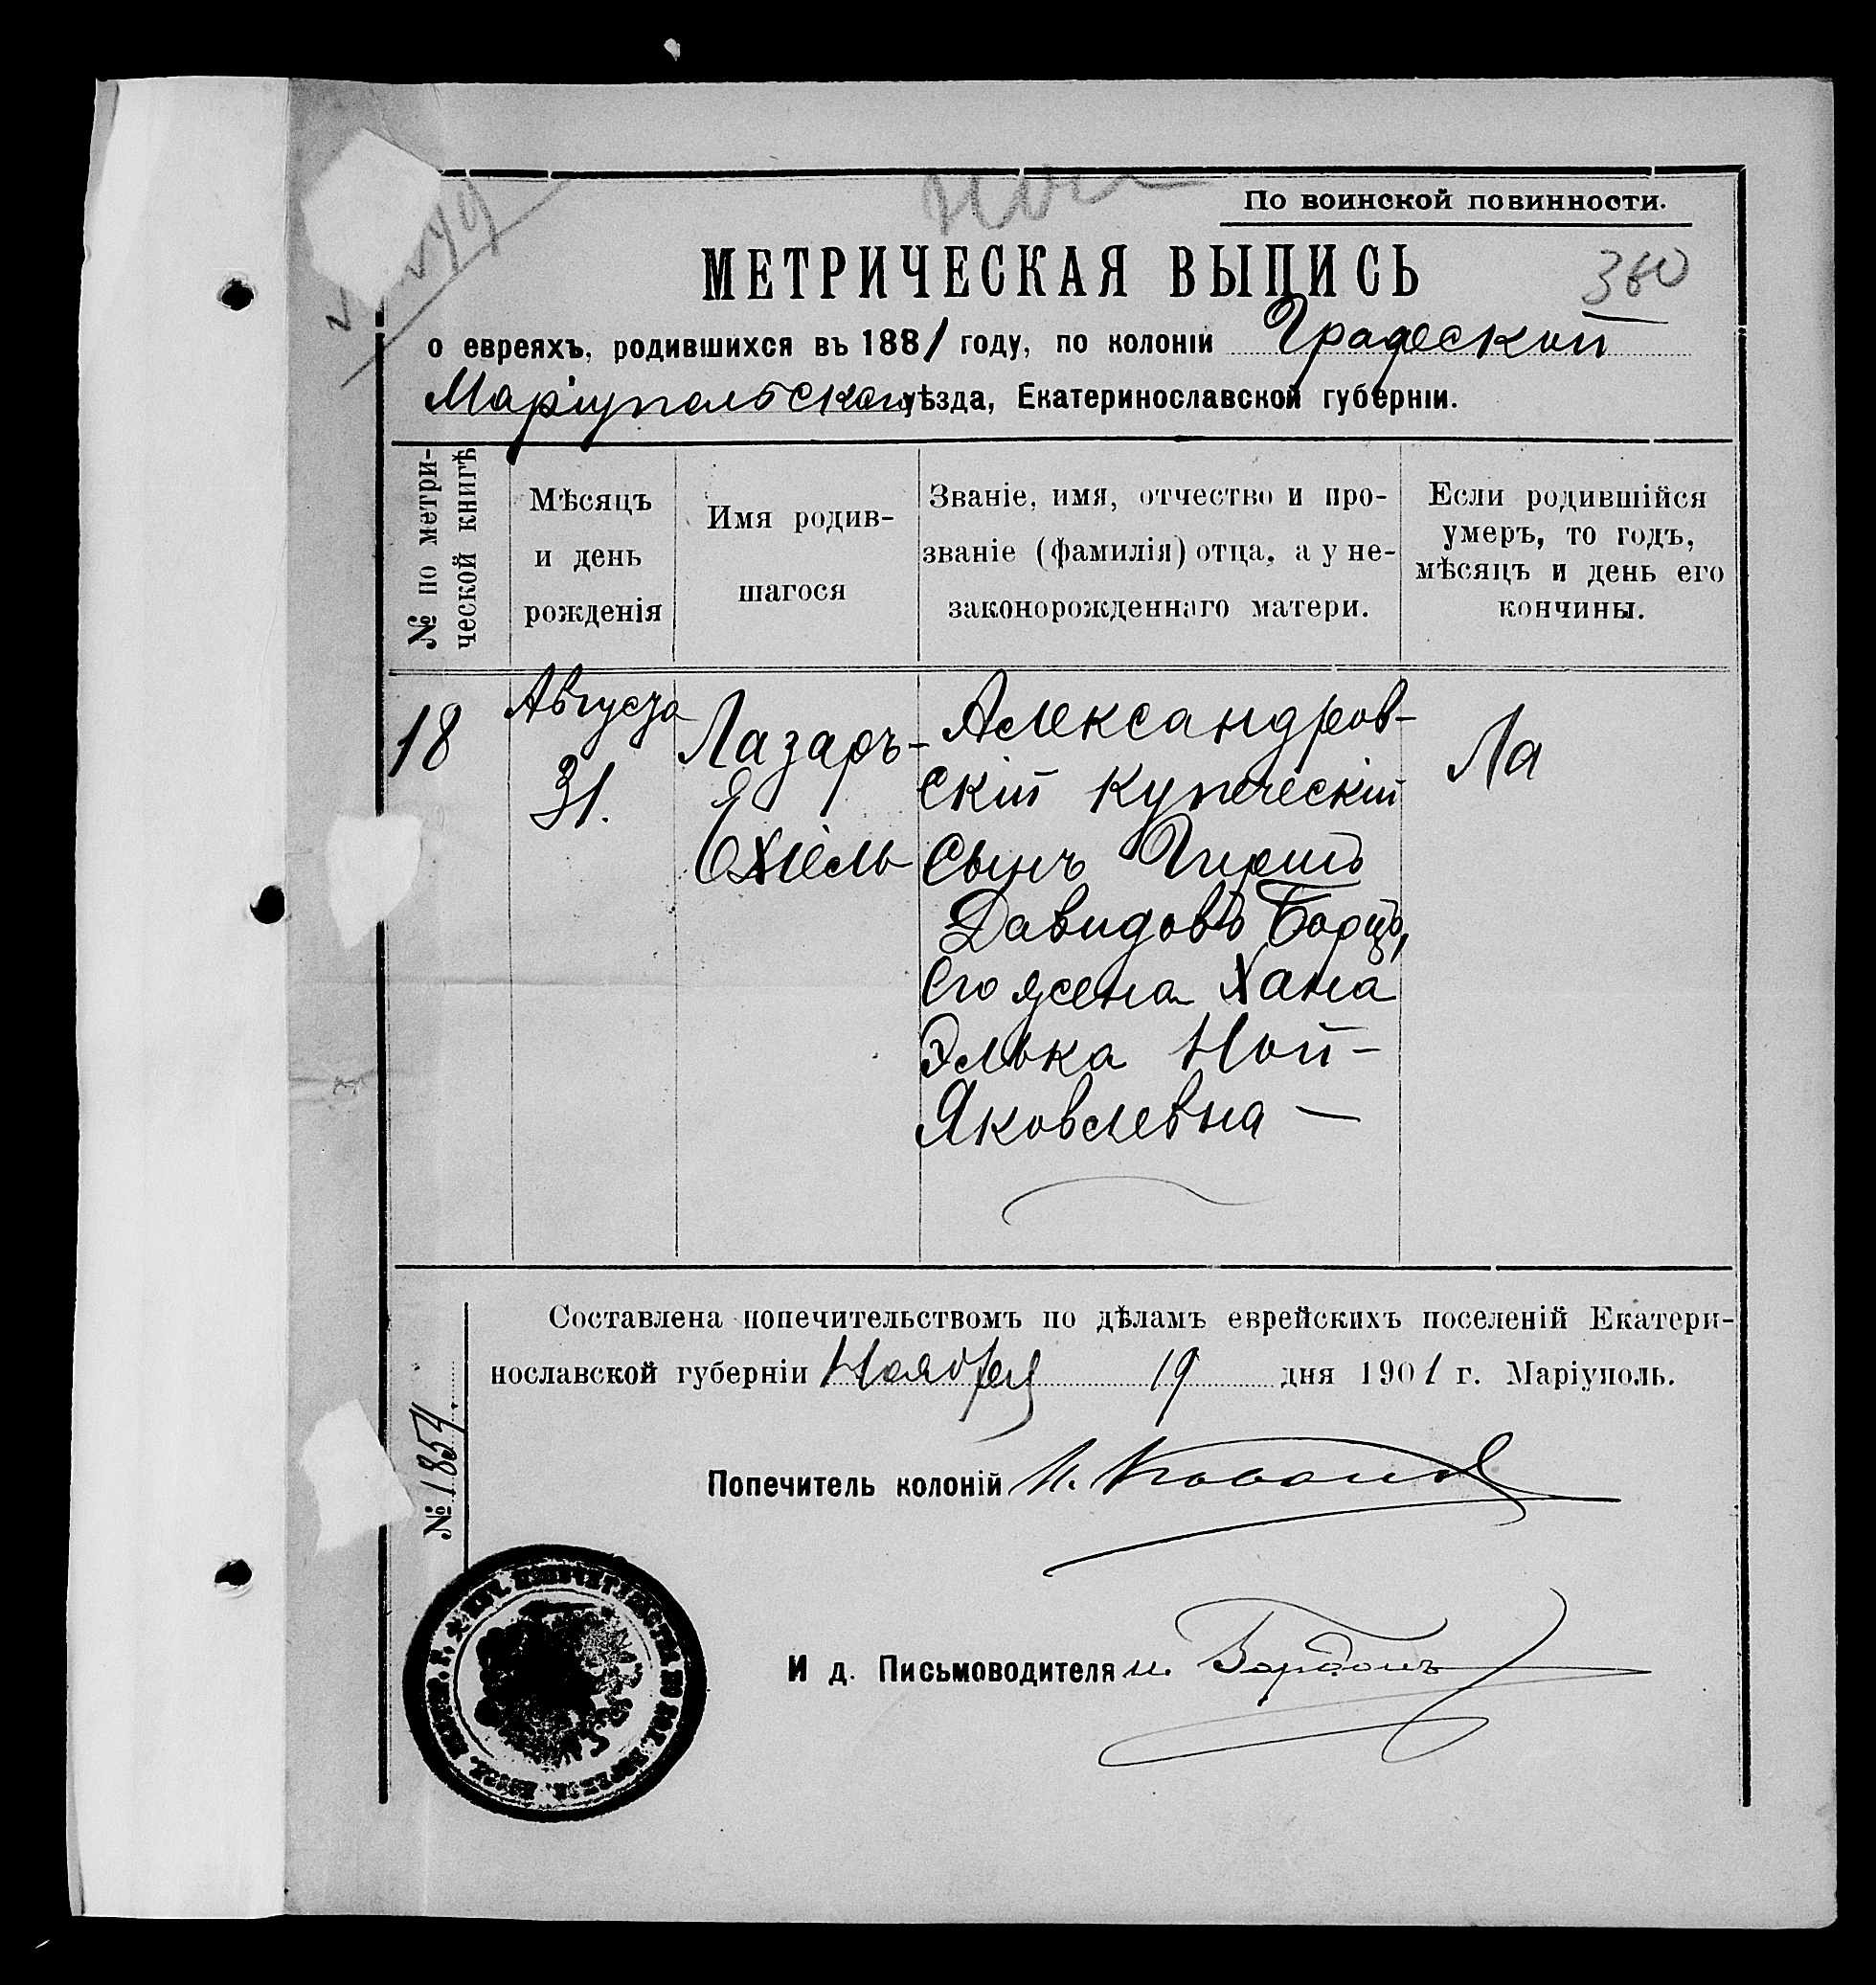 По воинской повинности.
МЕТРИЧЕСКАЯ ВЫПИСЬ
360
о евреяхъ, родившихся въ 1881 году, по колоніи Градеской
Маріупольскаго уѣзда, Екатеринославской губерніи.
№ по метри-
ческой книгѣ
Мѣсяцъ
и день
рожденія
Имя родив-
шагося
Званіе, имя, отчество и про-
званіе (фамилія) отца, а у не-
законорожденнаго матери.
Если родившійся
умеръ, то годъ,
мѣсяцъ и день его
кончины.
18
Августа
31.
Лазаръ-
Ехіель
Александров-
скій купеческій
сынъ Гиршъ
Давидовъ Борцъ,
его жена Хана
Элька Ной-
Яковлевна —
Составлена попечительствомъ по дѣламъ еврейскихъ поселеній Екатери-
нославской губерніи Ноября 19 дня 1901 г. Маріуполь.
№ 1854.
Попечитель колоній И.
И д. Письмоводителя